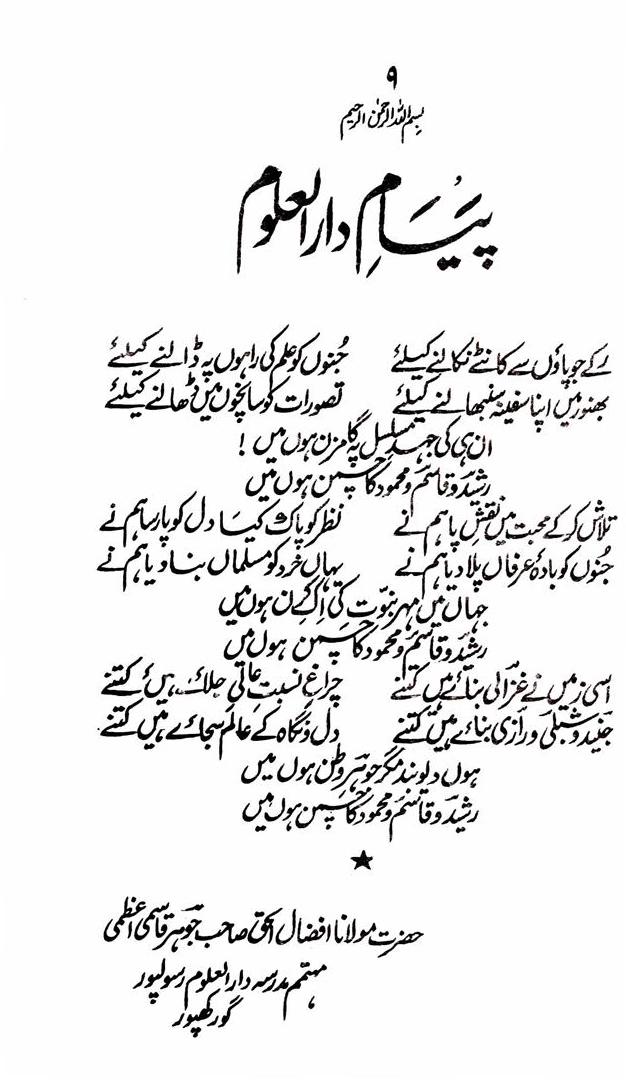 ۹
بسم اللہ الرحمٰن الرحیم
پَیَامِ دارالعلوم
رُکے جو پاؤں سے کانٹے نکالنے کیلئے جُنوں کو علم کی راہوں پہ ڈالنے کیلئے
بھنور میں اپنا سفینہ سنبھالنے کیلئے تصورات کو سانچوں میں ڈھالنے کیلئے
ان ہی کی جہدِ مسلسل پہ گامزن ہوں میں !
رشید و قاسم و محمود کا چمن ہوں میں
تلاش کر کے محبت میں نقشِ پا ہم نے نظر کو پاک کیا دل کو پارسا ہم نے
جُنوں کو بادۂ عرفاں پلا دیا ہم نے یہاں خرد کو مسلماں بنا دیا ہم نے
جہاں میں مہرِ نبوّت کی اِک کرن ہوں میں
رشید و قاسم و محمود کا چمن ہوں میں
اسی زمیں نے غزالی بنائے ہیں کتنے چراغِ نسبتِ عالی جلائے ہیں کتنے
جنید و شبلی و رازی بنائے ہیں کتنے دل و نگاہ کے عالم سجائے ہیں کتنے
ہوں دیوبند مگر جوہرِ وطن ہوں میں
رشید و قاسم و محمود کا چمن ہوں میں
★
حضرت مولانا افضال الحق صاحب جوہر قاسمی اعظمی
مہتمم مدرسہ دارالعلوم رسولپور
گورکھپور